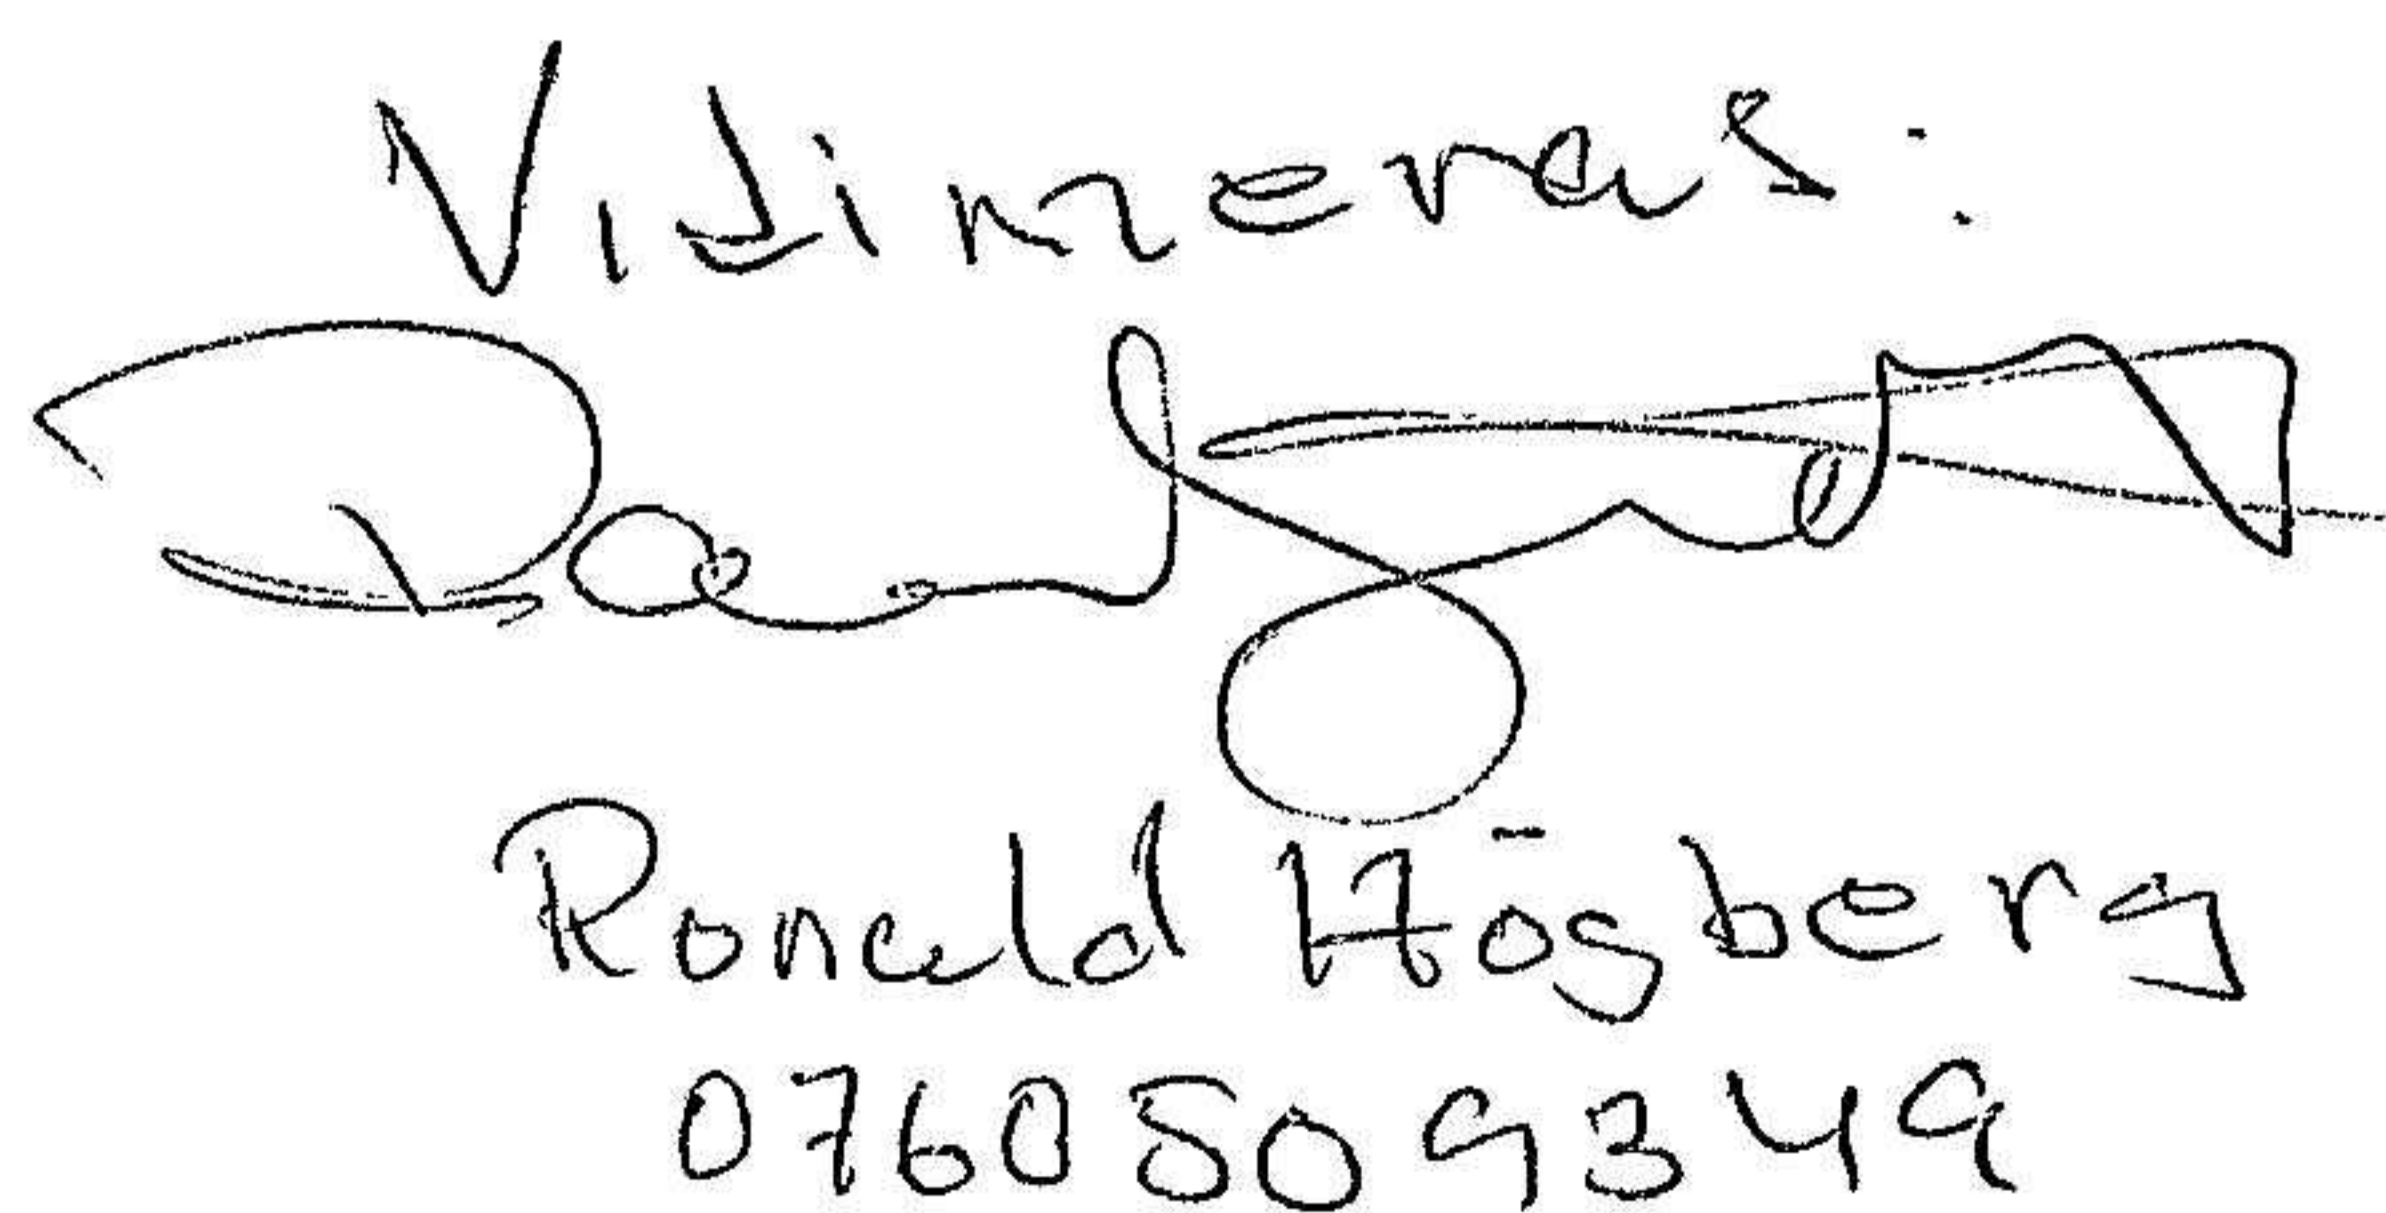 Vidimeras:
Ronald Högberg
0760509349